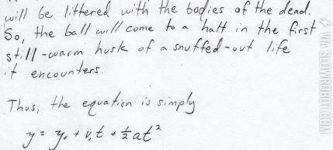 will be littered with the bodies of the dead.
So, the ball will come to a halt in the first
still-warm husk of a snuffed-out life
it encounters.
Thus, the equation is simply
y = y₀ + v₀t + ½at²